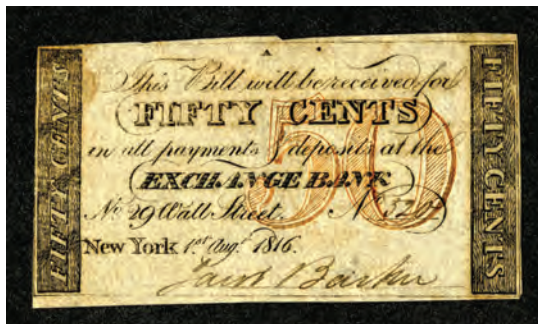 This Bill will be received for
FIFTY CENTS
in all payments & deposits at the
EXCHANGE BANK
No. 29 Wall Street. No
New York 1st Augt. 1816.
Jacob Barker
FIFTY CENTS
FIFTY CENTS
50